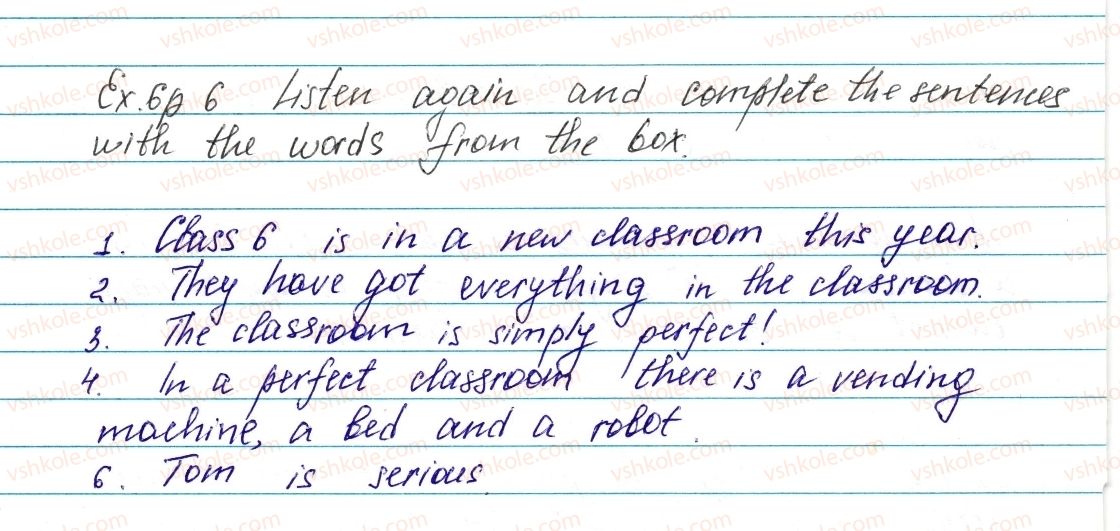 Ex. 6 p 6 Listen again and complete the sentences
with the words from the box.
1. Class 6 is in a new classroom this year.
2. They have got everything in the classroom.
3. The classroom is simply perfect!
4. In a perfect classroom there is a vending
machine, a bed and a robot.
6. Tom is serious.